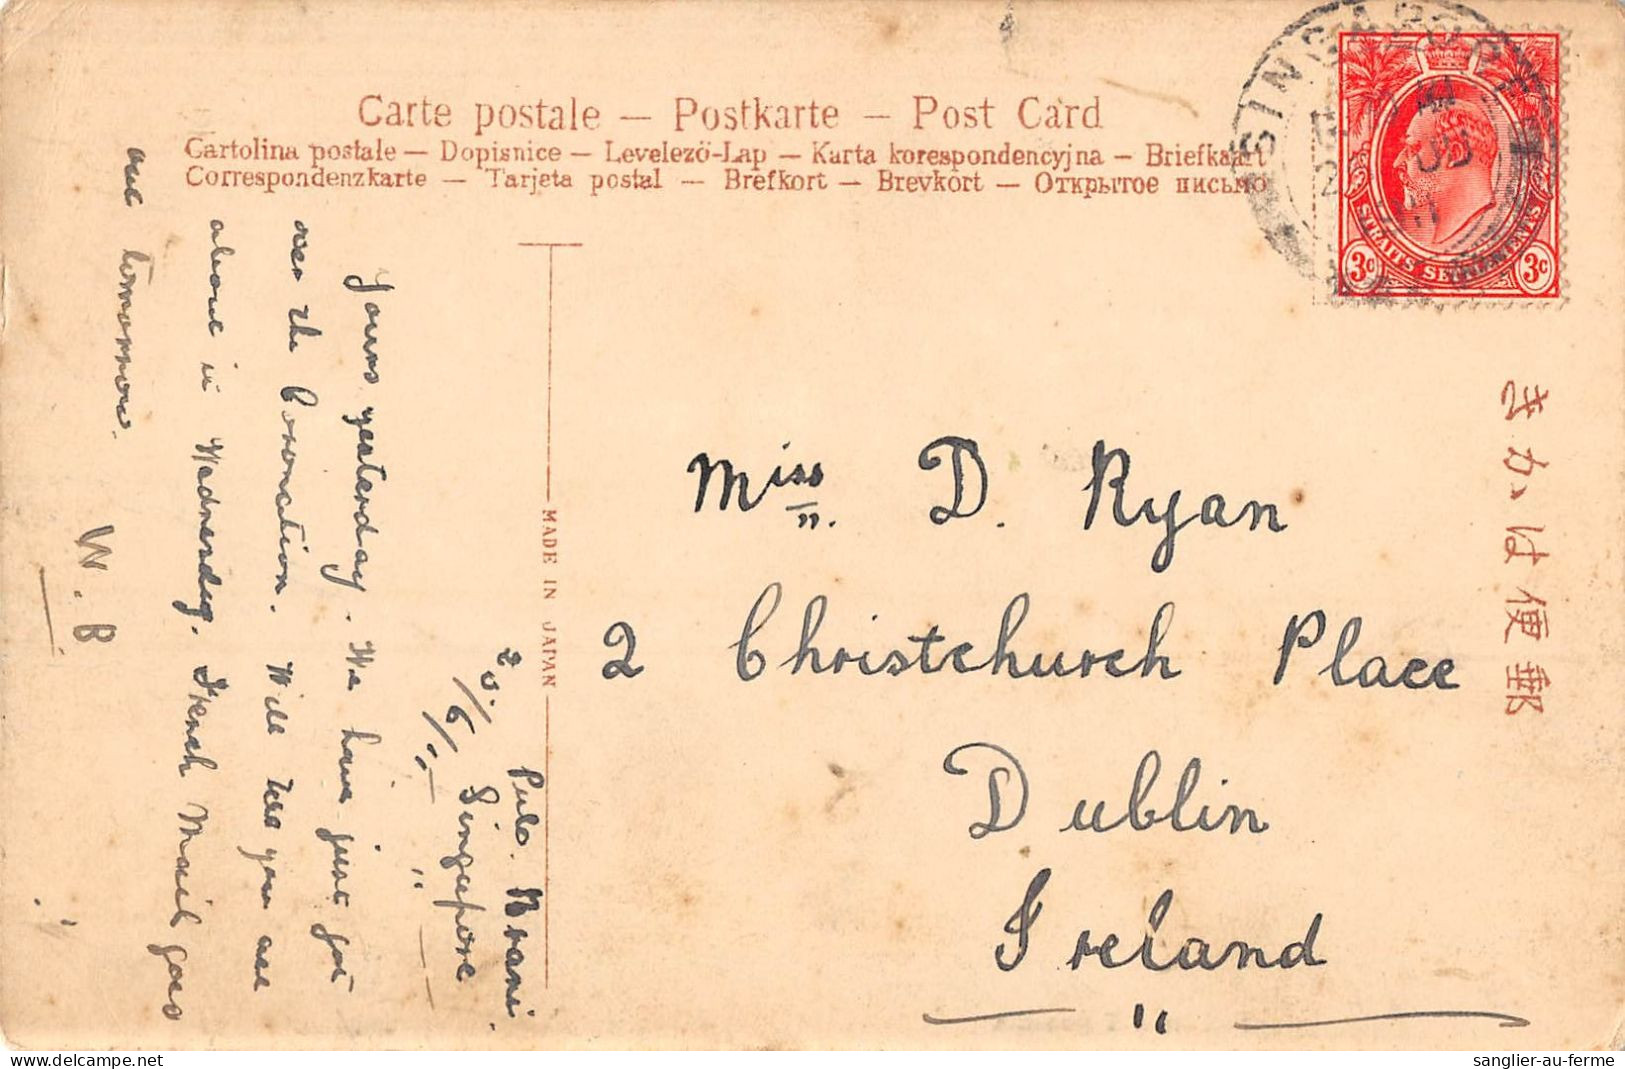 Carte postale — Postkarte — Post Card
Cartolina postale — Dopisnice — Levelező-Lap — Karta korespondencyjna — Briefkaart
Correspondenzkarte — Tarjeta postal — Brefkort — Brevkort — Открытое письмо
SINGAPORE
STRAITS SETTLEMENTS
3c 3c
きかは便郵
MADE IN JAPAN
Pulo Brani.
Singapore
20/6/11
Yours yesterday. We have just got
over the Coronation. Will tell you all
about it Wednesday. French Mail goes
out tomorrow.
W. B
Miss D. Ryan
2 Christchurch Place
Dublin
Ireland
sanglier-au-ferme